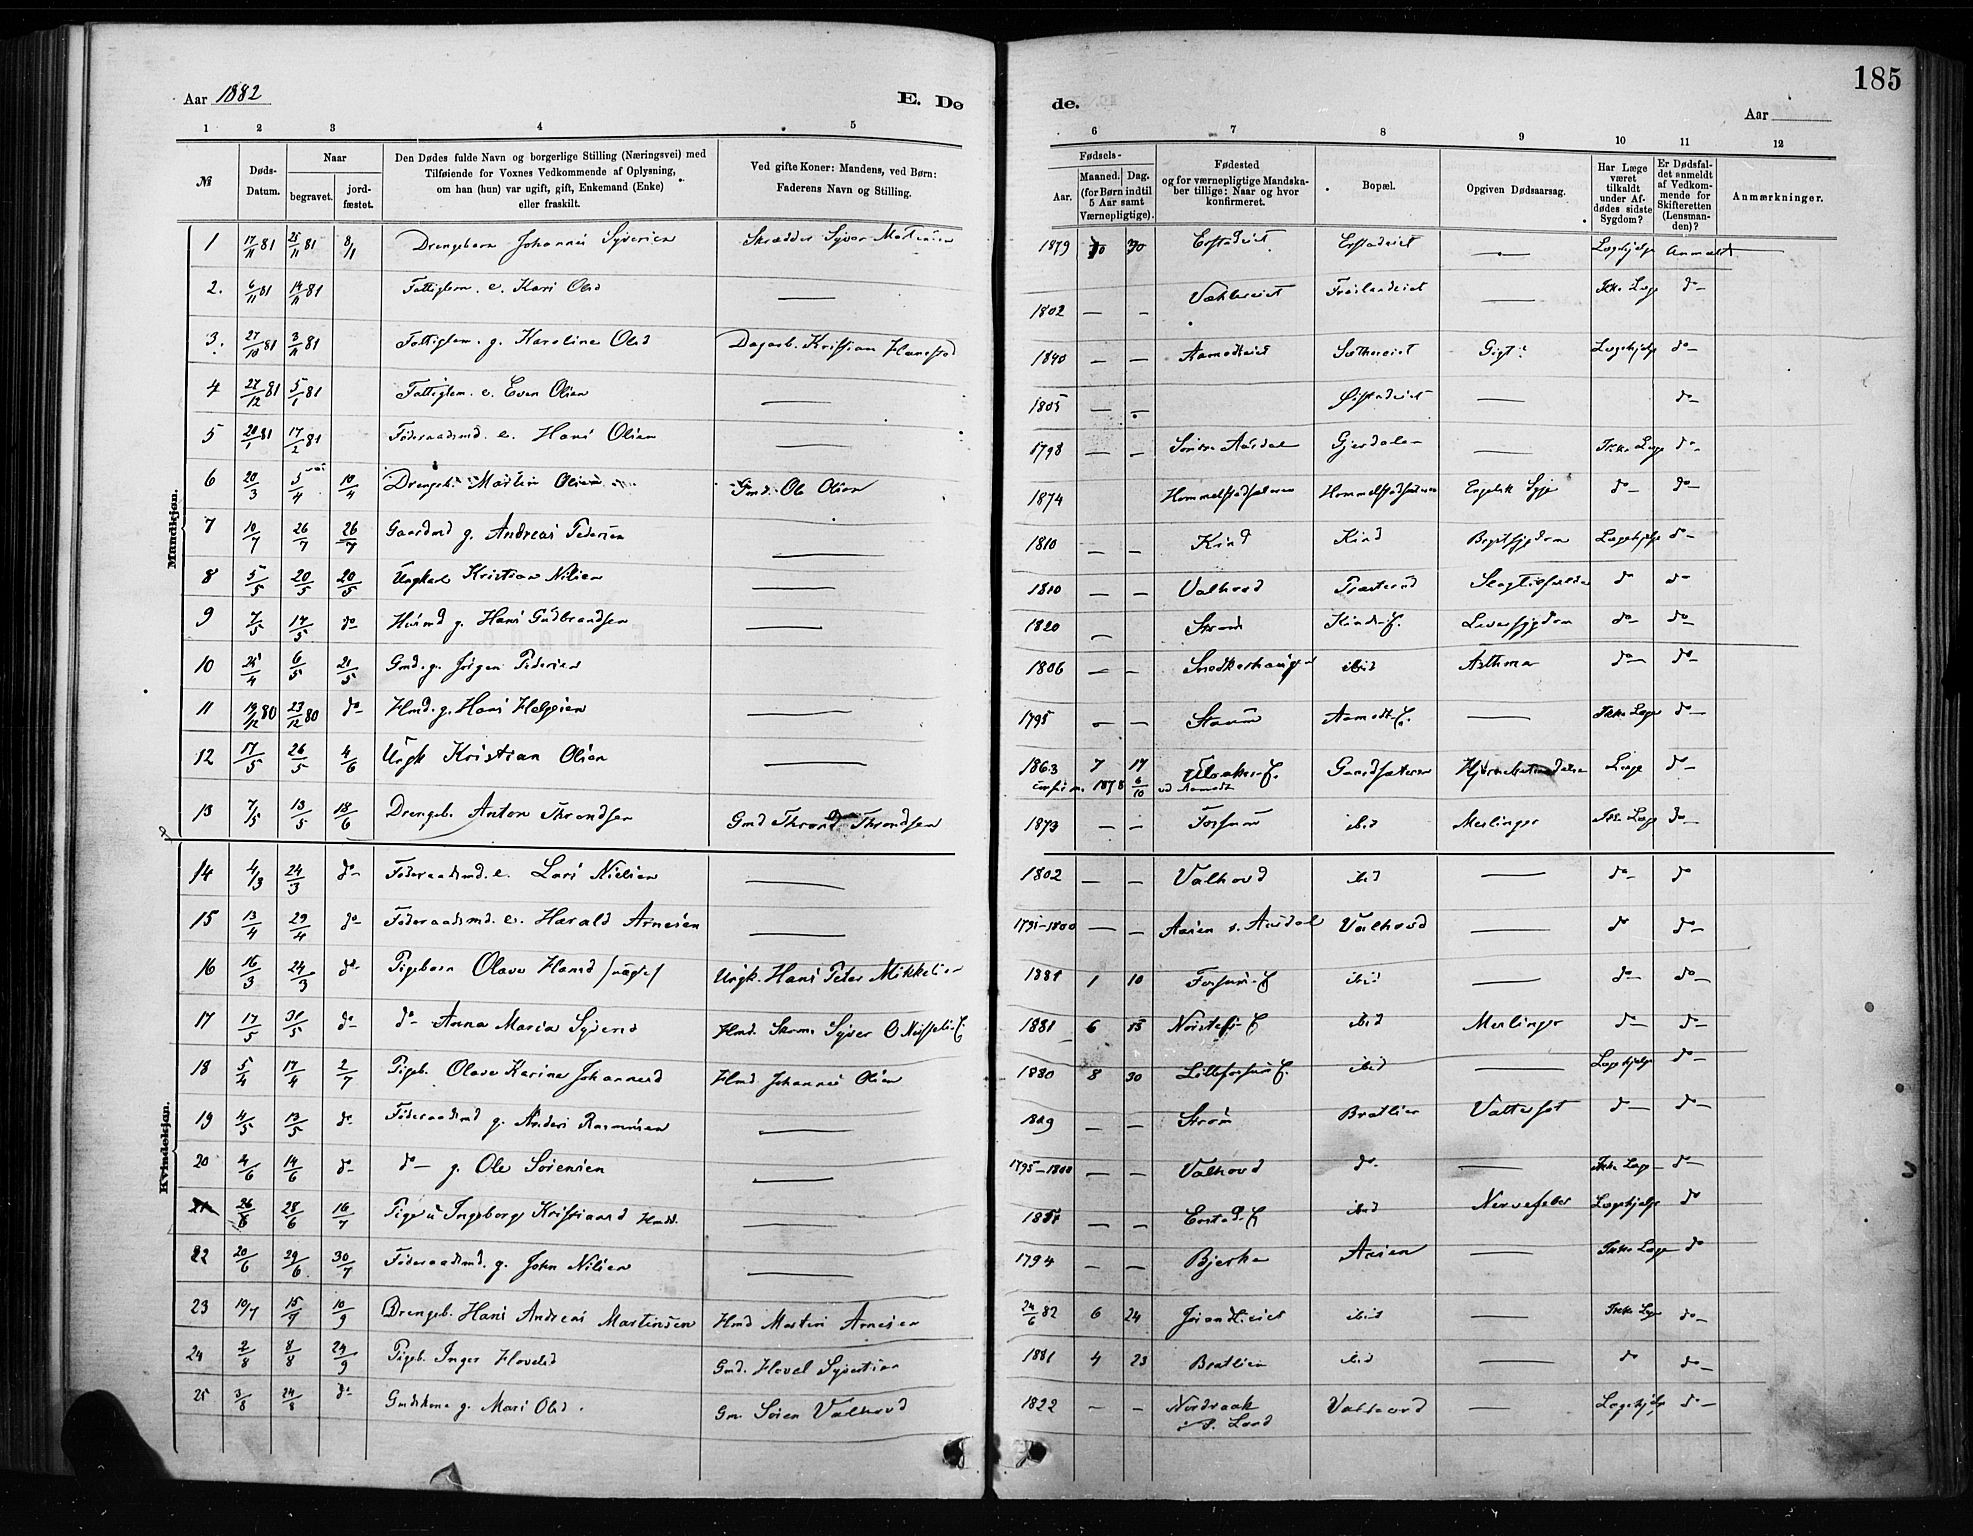 185
Aar 1882
E. Dø
de.
Aar
1 2 3 4 5 6 7 8 9 10 11 12
№
Døds-Datum.
Naar
begravet.
jord-fæstet.
Den Dødes fulde Navn og borgerlige Stilling (Næringsvei) med
Tilføiende for Voxnes Vedkommende af Oplysning,
om han (hun) var ugift, gift, Enkemand (Enke)
eller fraskilt.
Ved gifte Koner: Mandens, ved Børn:
Faderens Navn og Stilling.
Fødsels-
Aar.
Maaned. Dag.
(for Børn indtil
5 Aar samt
Værnepligtige).
Fødested
og for værnepligtige Mandska-
ber tillige: Naar og hvor
konfirmeret.
Bopæl.
Opgiven Dødsaarsag.
Har Læge
været
tilkaldt
under Af-
dødes sidste
Sygdom?
Er Dødsfal-
det anmeldt
af Vedkom-
mende for
Skifteretten
(Lensman-
den)?
Anmærkninger.
Mandkjøn.
Kvindekjøn.
1 17/11 81 25/11 81 8/1 Drengebarn Johannes Syversen Skrædder Syver Mortensen 1879 30 Lægehjelp Anmeldt
2. 6/11 81 14/11 81 Fattiglem. e. Kari Olsd — 1802 — — Ikke Læge do
3. 27/10 81 3/11 81 Fattiglem. g. Karoline Olsd Dagarb. Kristian 1840 — — Aamodteiet Gigt Lægehjelp do
4 27/12 81 5/1 81 Fattiglem. e. Even Olsen — 1805 — — — do
5 20/1 81 17/2 81 Føderaadsmd. e. Hans Olsen — 1798 — — Søndre Aasdal Gjerdalen Ikke Læge do
6 20/3 5/4 10/4 Drengeb. Martin Olsen Gmd. Ole Olsen 1874 Hommelstadsæteren Hommelstadsæteren Engelsk Syge do do
7 10/7 26/7 26/7 Gaardmd g. Andreas Pedersen — 1810 — — Kind Kind Brystsygdom Lægehjelp do
8 5/5 20/5 20/5 Ungkarl Kristian Nilsen — 1810 — — Valhovd Præsterud do do
9 7/5 14/5 do Husmd g. Hans Gudbrandsen — 1820 — Strøm Kinds E. Leversygdom do do
10 25/4 6/5 21/5 Gmd. g. Jørgen Pedersen — 1806 — — Snedkerhaugen ibid Asthma do do
11 19/12 80 23/12 80 do Hmd. g. Hans Helgesen — 1795 — — Aamodt E. — Ikke Læge do
12 17/5 26/5 4/6 Ungk Kristian Olsen — 1863 7 17 Gaardsæteren Læge do
confirm. 1878 6/10 ved Aamodt
13 7/5 13/5 18/6 Drengeb. Anton Throndsen Gmd Thrond Throndsen 1873 — — Fossum ibid Meslinger Ikke Læge do
14 4/3 24/3 do Føderaadsmd. e. Lars Nielsen — 1802 — — Valhovd ibid — do do
15 13/4 29/4 do Føderaadsmd. e. Harald Arnesen — 1791–1800 — — Aasen s. Aasdal Valhovd — do do
16 16/3 24/3 do Pigebarn Olave Hansd /uægte/ Ungk. Hans Peter Mikkelsen 1881 1 10 Fossum E ibid — do do
17 17/5 31/5 do do Anna Maria Syversd Hmd. Skom. Syver 1881 6 15 ibid Meslinger do do
18 5/4 17/4 2/7 Pigeb. Olave Karine Johannesd Hmd. Johannes Olsen 1880 8 30 Lillefossum E. ibid Lægehjelp do
19 4/5 13/5 do Føderaadsmd g. Anders Rasmussen — 1809 — — Strøm Bratlien Vattersot do do
20 4/6 14/6 do do g. Ole Sørensen — 1795–1800 — — Valhovd do — Ikke Læge do
21 26/6 28/6 16/7 Pige u Ingeborg Kristiansd Hmdd. — 1857 — — ibid Nervefeber Lægehjelp do
22 20/6 29/6 30/7 Føderaadsmd. g. John Nilsen — 1794 — — Bjerke Aasen — Ikke Læge do
23 10/7 15/7 10/9 Drengeb. Hans Andreas Martinsen Hmd Martin Arnesen 24/6 82 6 24 ibid — Ikke Læge do
24 2/8 8/8 24/9 Pigeb. Inger Hovelsd Gmd. Hovel Syvertsen 1881 4 23 Bratlien ibid — do do
25 3/8 24/8 do Gmdskone g. Mari Olsd. Gm. Søren Valhovd 1822 — — Nordraak Valhovd — Lægehjelp do
i S. Land